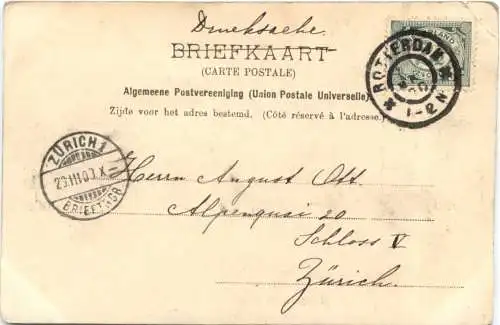 Drucksache
BRIEFKAART
(CARTE POSTALE)
Algemeene Postvereeniging (Union Postale Universelle)
Zijde voor het adres bestemd. (Côté réservé à l'adresse.)
ROTTERDAM
1-2 N
ZÜRICH 1
23.III.03.X
BRIEFTHOR
Herrn August Ott.
Alpenquai 20
Schloss V
Zürich.